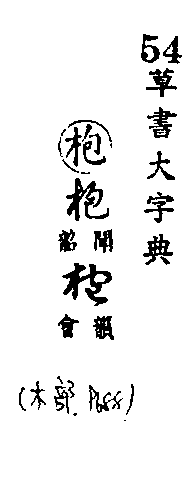 54草書大字典
枹
枹
聞韶
枹
韻會
(木部 P688)